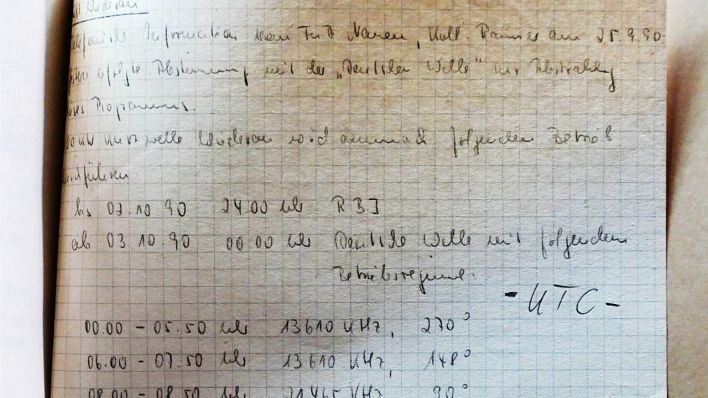 Wiederau
Information vom FuA Nauen, Koll. am 25.9.90
erfolgte Abstimmung mit der "Deutschen Welle" zur Abstrahlung
Programms.
Kurzwelle Wiederau wird demnach folgenden Betrieb
durchführen.
bis 02.10.90 24.00 Uhr RBI
ab 03.10.90 00.00 Uhr Deutsche Welle mit folgendem
Betriebsregime.
- UTC -
00.00 - 05.50 Uhr 13610 KHz, 270°
06.00 - 07.50 Uhr 13610 KHz, 148°
08.00 - 08.50 Uhr 21465 KHz, 90°